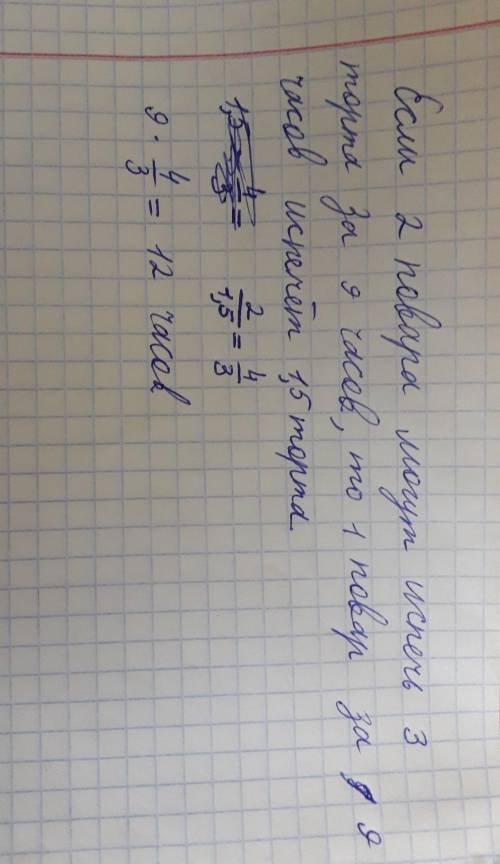 Если 2 повара могут испечь 3
торта за 9 часов, то 1 повар за 9
часов испечёт 1,5 торта.
2/1,5 = 4/3
9 · 4/3 = 12 часов